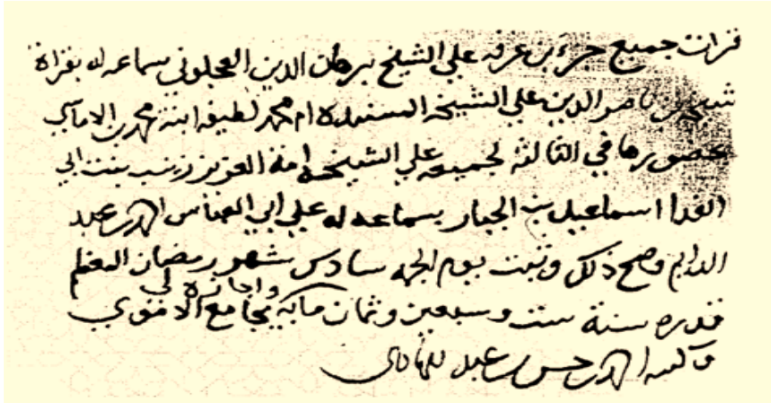 قرات جميع جزء بن عرفة على الشيخ برهان الدين العجلوني بسماعه له بقراة
شيخه بن ناصر الدين على الشيخة المسندة ام محمد لطيفة ابنة محمد بن الاماسي
بحضورها في الثالثة لجميعه على الشيخة امة العزيز زينب بنت ابي
الفدا اسماعيل بن الخباز بسماعه له على ابي العباس احمد بن عبد
الدايم وصح ذلك وثبت يوم الجمعة سادس شهر رمضان المعظم
قدره سنة ست وسبعين وثمان ماية بجامع الاموي
واجازه لي
وكتبه احمد بن حسن بن عبد الهادي